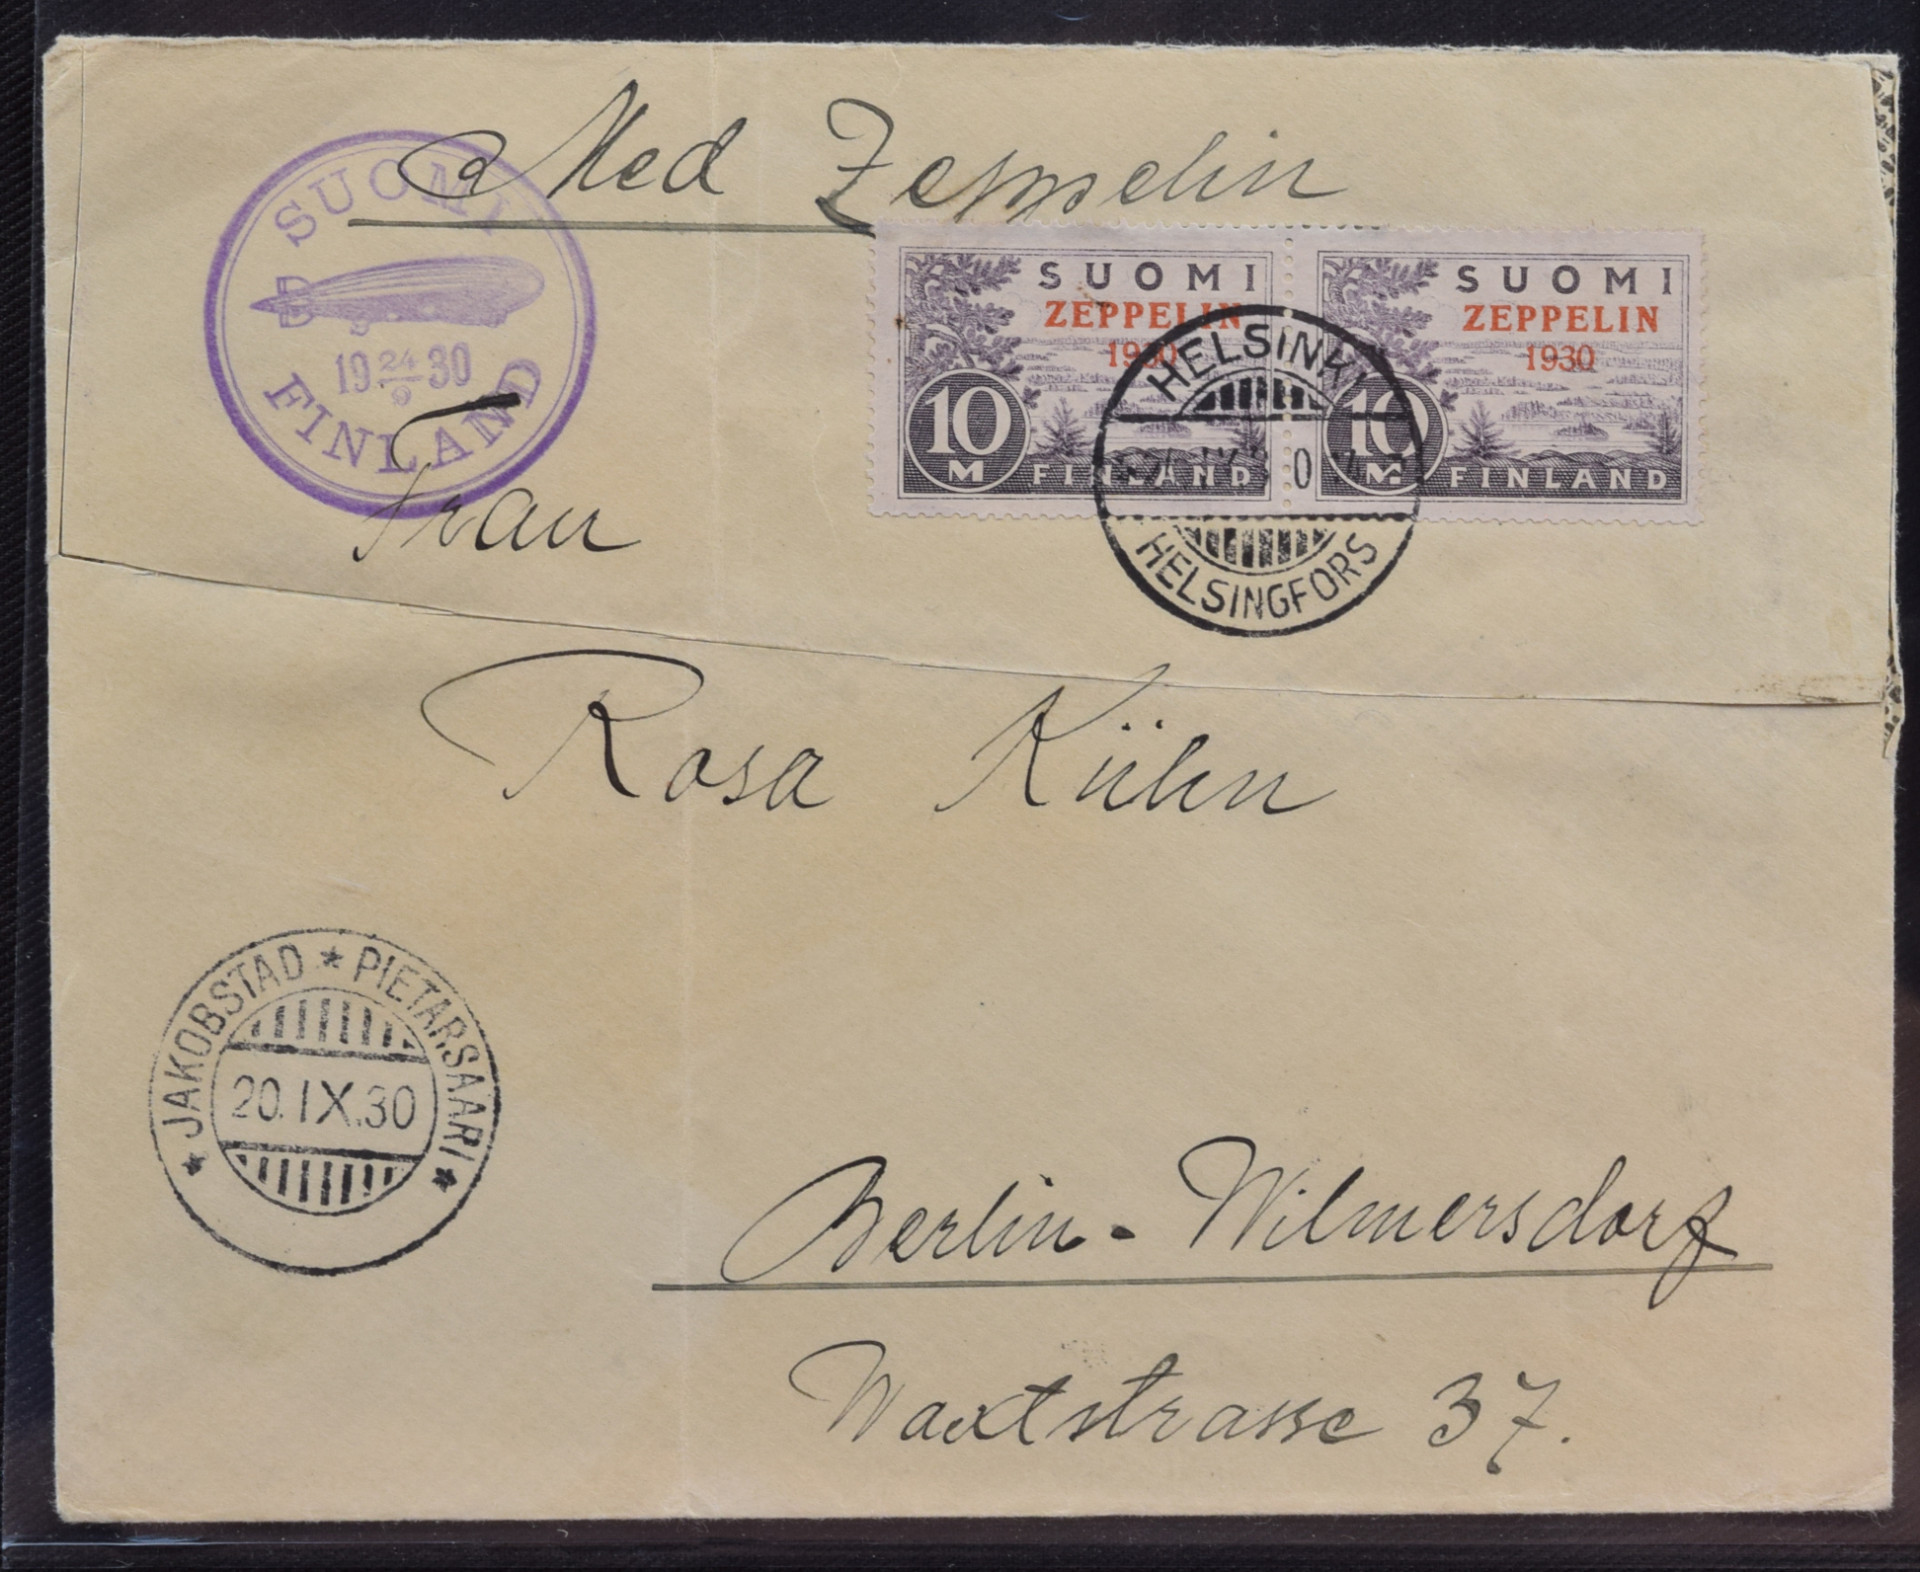 Med Zeppelin
SUOMI
19 24/9 30
FINLAND
SUOMI
ZEPPELIN
1930
10
M
FINLAND
SUOMI
ZEPPELIN
1930
10
M
FINLAND
HELSINKI
HELSINGFORS
Frau
Rosa Kühn
★ JAKOBSTAD ★ PIETARSAARI ★
20.IX.30
Berlin-Wilmersdorf
37.